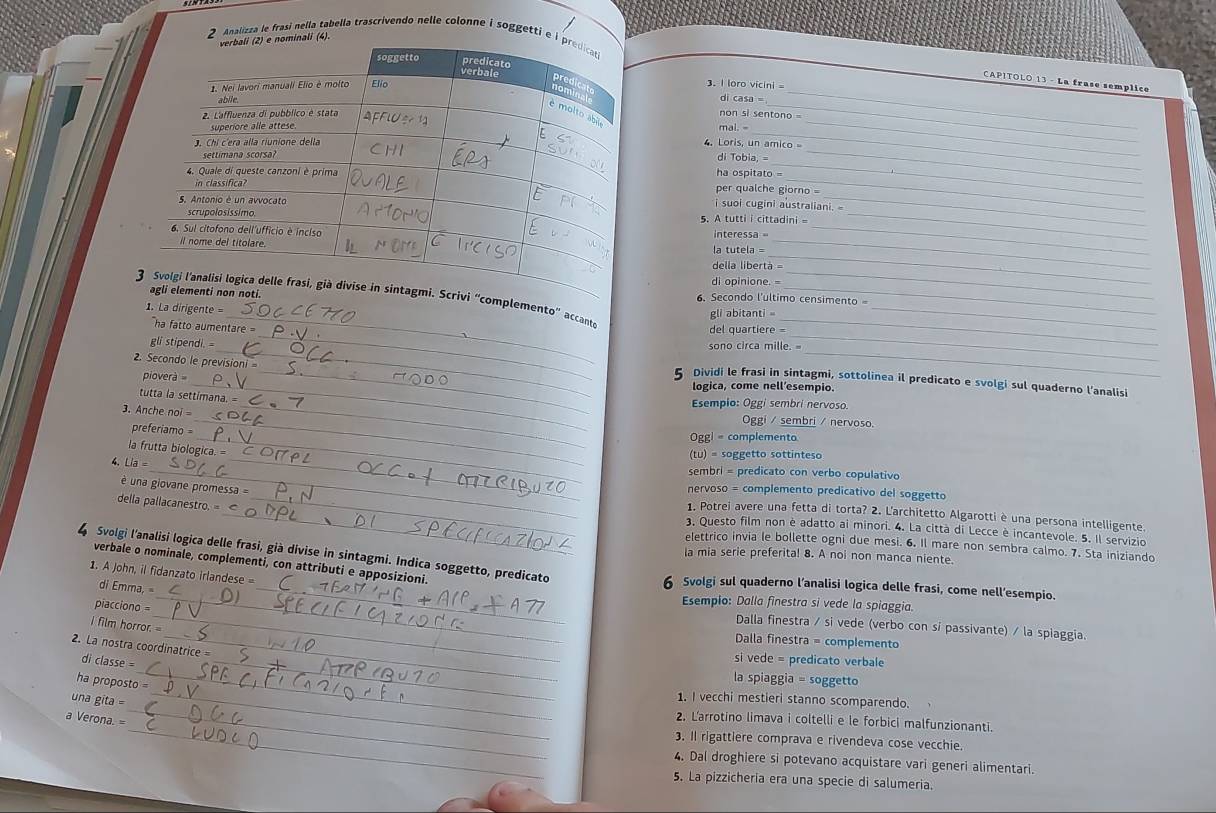 2 Analizza le frasi nella tabella trascrivendo nelle colonne i soggetti e i predicati
verbali (2) e nominali (4).
soggetto predicato verbale Predicato nominale
1. Nei lavori manuali Elio è molto abile. Elio è molto abile
2. L'affluenza di pubblico è stata superiore alle attese.
3. Chi c'era alla riunione della settimana scorsa? CHI
4. Quale di queste canzoni è prima in classifica? QUALE
5. Antonio è un avvocato scrupolosissimo. ANTONIO
6. Sul citofono dell'ufficio è inciso il nome del titolare. IL NOME È INCISO
3 Svolgi l'analisi logica delle frasi, già divise in sintagmi. Scrivi "complemento" accanto
agli elementi non noti.
1. La dirigente = SOGGETTO
ha fatto aumentare = P.V.
gli stipendi. = C OGG.
2. Secondo le previsioni =
pioverà = P.V
tutta la settimana. = C. T
3. Anche noi = SOGG
preferiamo = P.V
la frutta biologica. = COMPL OGG + ATTRIBUTO
4. Lia = SOGG
è una giovane promessa = P.N
della pallacanestro. = COMPL DI SPECIFICAZIONE
4 Svolgi l'analisi logica delle frasi, già divise in sintagmi. Indica soggetto, predicato
verbale o nominale, complementi, con attributi e apposizioni.
1. A John, il fidanzato irlandese = C TERMINE + APP. + ATT
di Emma, = C DI SPECIFICAZIONE
piacciono = PV
i film horror. = S
2. La nostra coordinatrice = S + ATTRIBUTO
di classe = C SPECIFICAZIONE
ha proposto = P.V
una gita = C OGG
a Verona. = C LUOGO
CAPITOLO 13 - La frase semplice
3. I loro vicini =
di casa =
non si sentono =
mai. =
4. Loris, un amico =
di Tobia, =
ha ospitato =
per qualche giorno =
i suoi cugini australiani. =
5. A tutti i cittadini =
interessa =
la tutela =
della libertà =
di opinione. =
6. Secondo l'ultimo censimento =
gli abitanti =
del quartiere =
sono circa mille. =
5 Dividi le frasi in sintagmi, sottolinea il predicato e svolgi sul quaderno l'analisi
logica, come nell'esempio.
Esempio: Oggi sembri nervoso.
Oggi / sembri / nervoso.
Oggi = complemento
(tu) = soggetto sottinteso
sembri = predicato con verbo copulativo
nervoso = complemento predicativo del soggetto
1. Potrei avere una fetta di torta? 2. L'architetto Algarotti è una persona intelligente.
3. Questo film non è adatto ai minori. 4. La città di Lecce è incantevole. 5. Il servizio
elettrico invia le bollette ogni due mesi. 6. Il mare non sembra calmo. 7. Sta iniziando
la mia serie preferita! 8. A noi non manca niente.
6 Svolgi sul quaderno l'analisi logica delle frasi, come nell'esempio.
Esempio: Dalla finestra si vede la spiaggia.
Dalla finestra / si vede (verbo con si passivante) / la spiaggia.
Dalla finestra = complemento
si vede = predicato verbale
la spiaggia = soggetto
1. I vecchi mestieri stanno scomparendo.
2. L'arrotino limava i coltelli e le forbici malfunzionanti.
3. Il rigattiere comprava e rivendeva cose vecchie.
4. Dal droghiere si potevano acquistare vari generi alimentari.
5. La pizzicheria era una specie di salumeria.